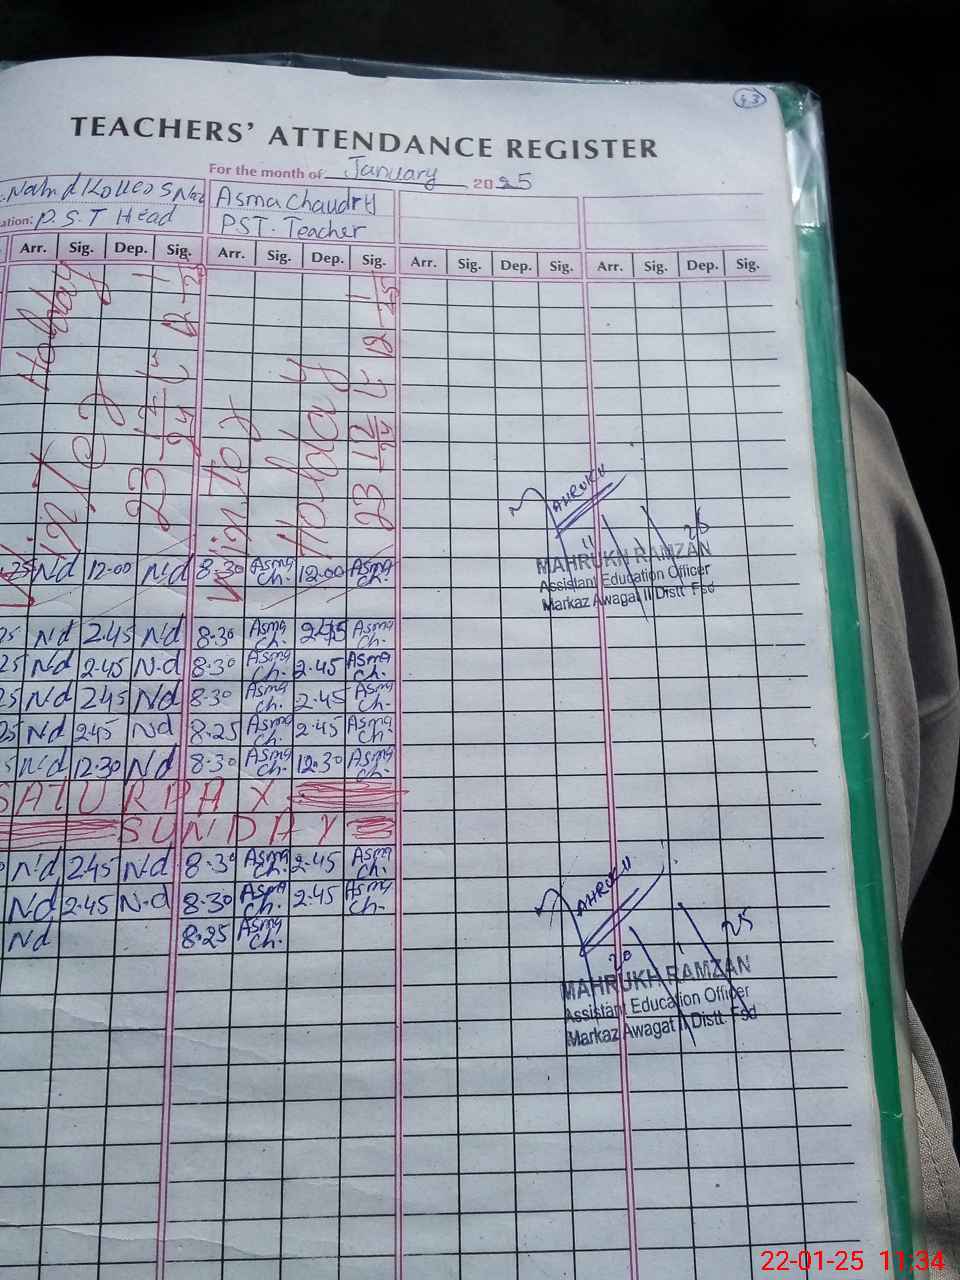 53
TEACHERS' ATTENDANCE REGISTER
For the month of January, 2025
Asma Chaudry
ation: P.S.T Head PST. Teacher
Arr. Sig. Dep. Sig. Arr. Sig. Dep. Sig. Arr. Sig. Dep. Sig. Arr. Sig. Dep. Sig.
Holiday
Winter Holiday
MAHRUKH
MAHRUKH RAMZAN
Assistant Education Officer
Markaz Awagat II Distt. Fsd
25 Nd 12-00 Nd 8-30 Asma Ch. 12-00 Asma Ch.
25 Nd 2.45 Nd 8.30 Asma Ch. 2.45 Asma Ch.
25 Nd 2.45 N.d 8.30 Asma Ch. 2.45 Asma Ch.
25 Nd 2.45 Nd 8.30 Asma Ch. 2.45 Asma Ch.
25 Nd 2.45 Nd 8.25 Asma Ch. 2.45 Asma Ch.
5 N.d 12.30 Nd 8.30 Asma Ch. 12.30 Asma Ch.
SATURDAY
SUNDAY
N.d 2.45 N.d 8.30 Asma Ch. 2.45 Asma Ch.
Nd 2.45 N.d 8.30 Asma Ch. 2.45 Asma Ch.
Nd 8.25 Asma Ch.
MAHRUKH
20 1 25
MAHRUKH RAMZAN
Assistant Education Officer
Markaz Awagat II Distt. Fsd
22-01-25 11:34